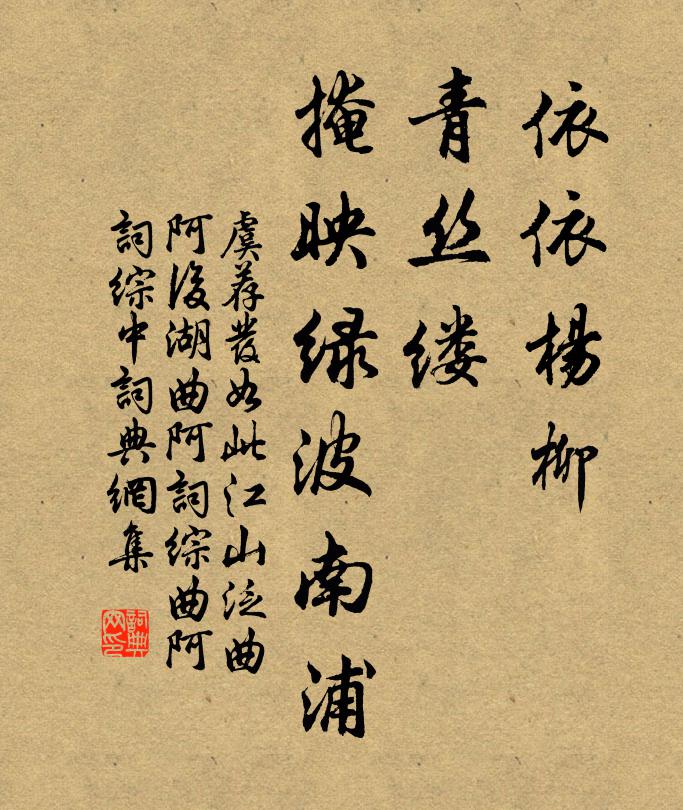 依依杨柳
青丝缕
掩映绿波南浦
虞荐发如此江山泛曲
阿后湖曲阿词综曲阿
词综中词典网集
词典网印